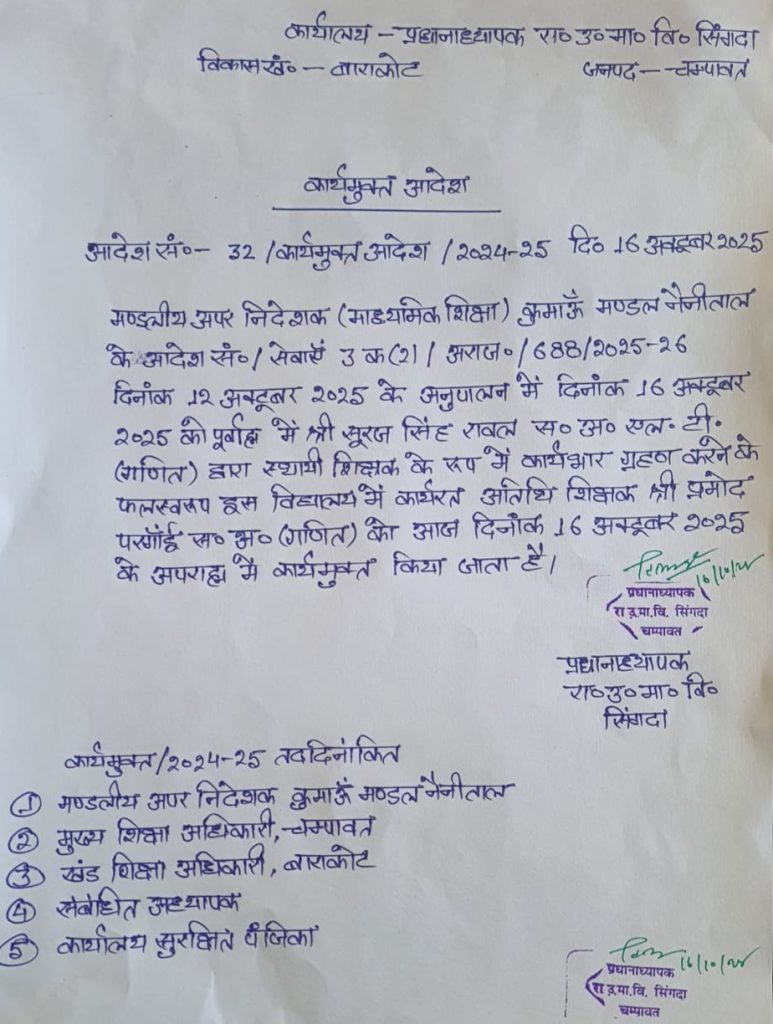 कार्यालय - प्रधानाध्यापक रा० उ० मा० वि० सिंगदा
विकास खं० - बाराकोट जनपद - चम्पावत
कार्यमुक्त आदेश
आदेश सं०- 32 /कार्यमुक्त आदेश /2024-25 दि० 16 अक्टूबर 2025
मण्डलीय अपर निदेशक (माध्यमिक शिक्षा) कुमाऊँ मण्डल नैनीताल
के आदेश सं०/ सेवाएँ 3 क(2) / अराज० /688/2025-26
दिनांक 12 अक्टूबर 2025 के अनुपालन में दिनांक 16 अक्टूबर
2025 को पूर्वाह्न में श्री सूरज सिंह रावल स० अ० एल. टी.
(गणित) द्वारा स्थायी शिक्षक के रूप में कार्यभार ग्रहण करने के
फलस्वरूप इस विद्यालय में कार्यरत अतिथि शिक्षक श्री प्रमोद
स० अ० (गणित) को आज दिनाँक 16 अक्टूबर 2025
के अपराह्न में कार्यमुक्त किया जाता है।
16/10/25
प्रधानाध्यापक
रा उ.मा.वि. सिंगदा
चम्पावत
प्रधानाध्यापक
रा० उ० मा० वि०
सिंगदा
कार्यमुक्त/2024-25 तददिनांकित
① मण्डलीय अपर निदेशक कुमाऊँ मण्डल नैनीताल
② मुख्य शिक्षा अधिकारी, चम्पावत
③ खंड शिक्षा अधिकारी, बाराकोट
④ संबंधित अध्यापक
⑤ कार्यालय सुरक्षित पंजिका
16/10/25
प्रधानाध्यापक
रा उ.मा.वि. सिंगदा
चम्पावत